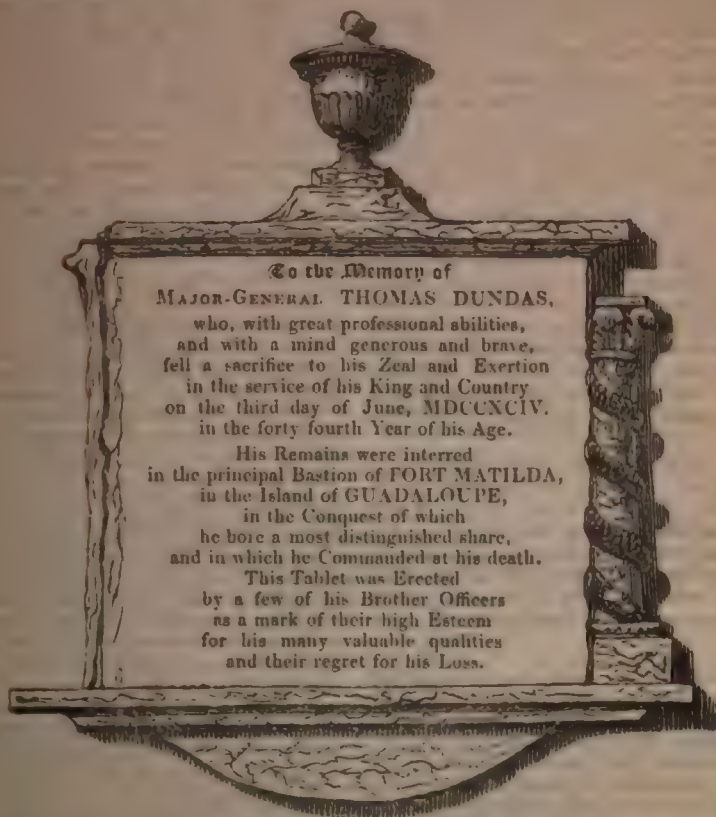 To the Memory of
MAJOR-GENERAL THOMAS DUNDAS,
who, with great professional abilities,
and with a mind generous and brave,
fell a sacrifice to his Zeal and Exertion
in the service of his King and Country
on the third day of June, MDCCXCIV.
in the forty fourth Year of his Age.
His Remains were interred
in the principal Bastion of FORT MATILDA,
in the Island of GUADALOUPE,
in the Conquest of which
he bore a most distinguished share,
and in which he Commanded at his death.
This Tablet was Erected
by a few of his Brother Officers
as a mark of their high Esteem
for his many valuable qualities
and their regret for his Loss.